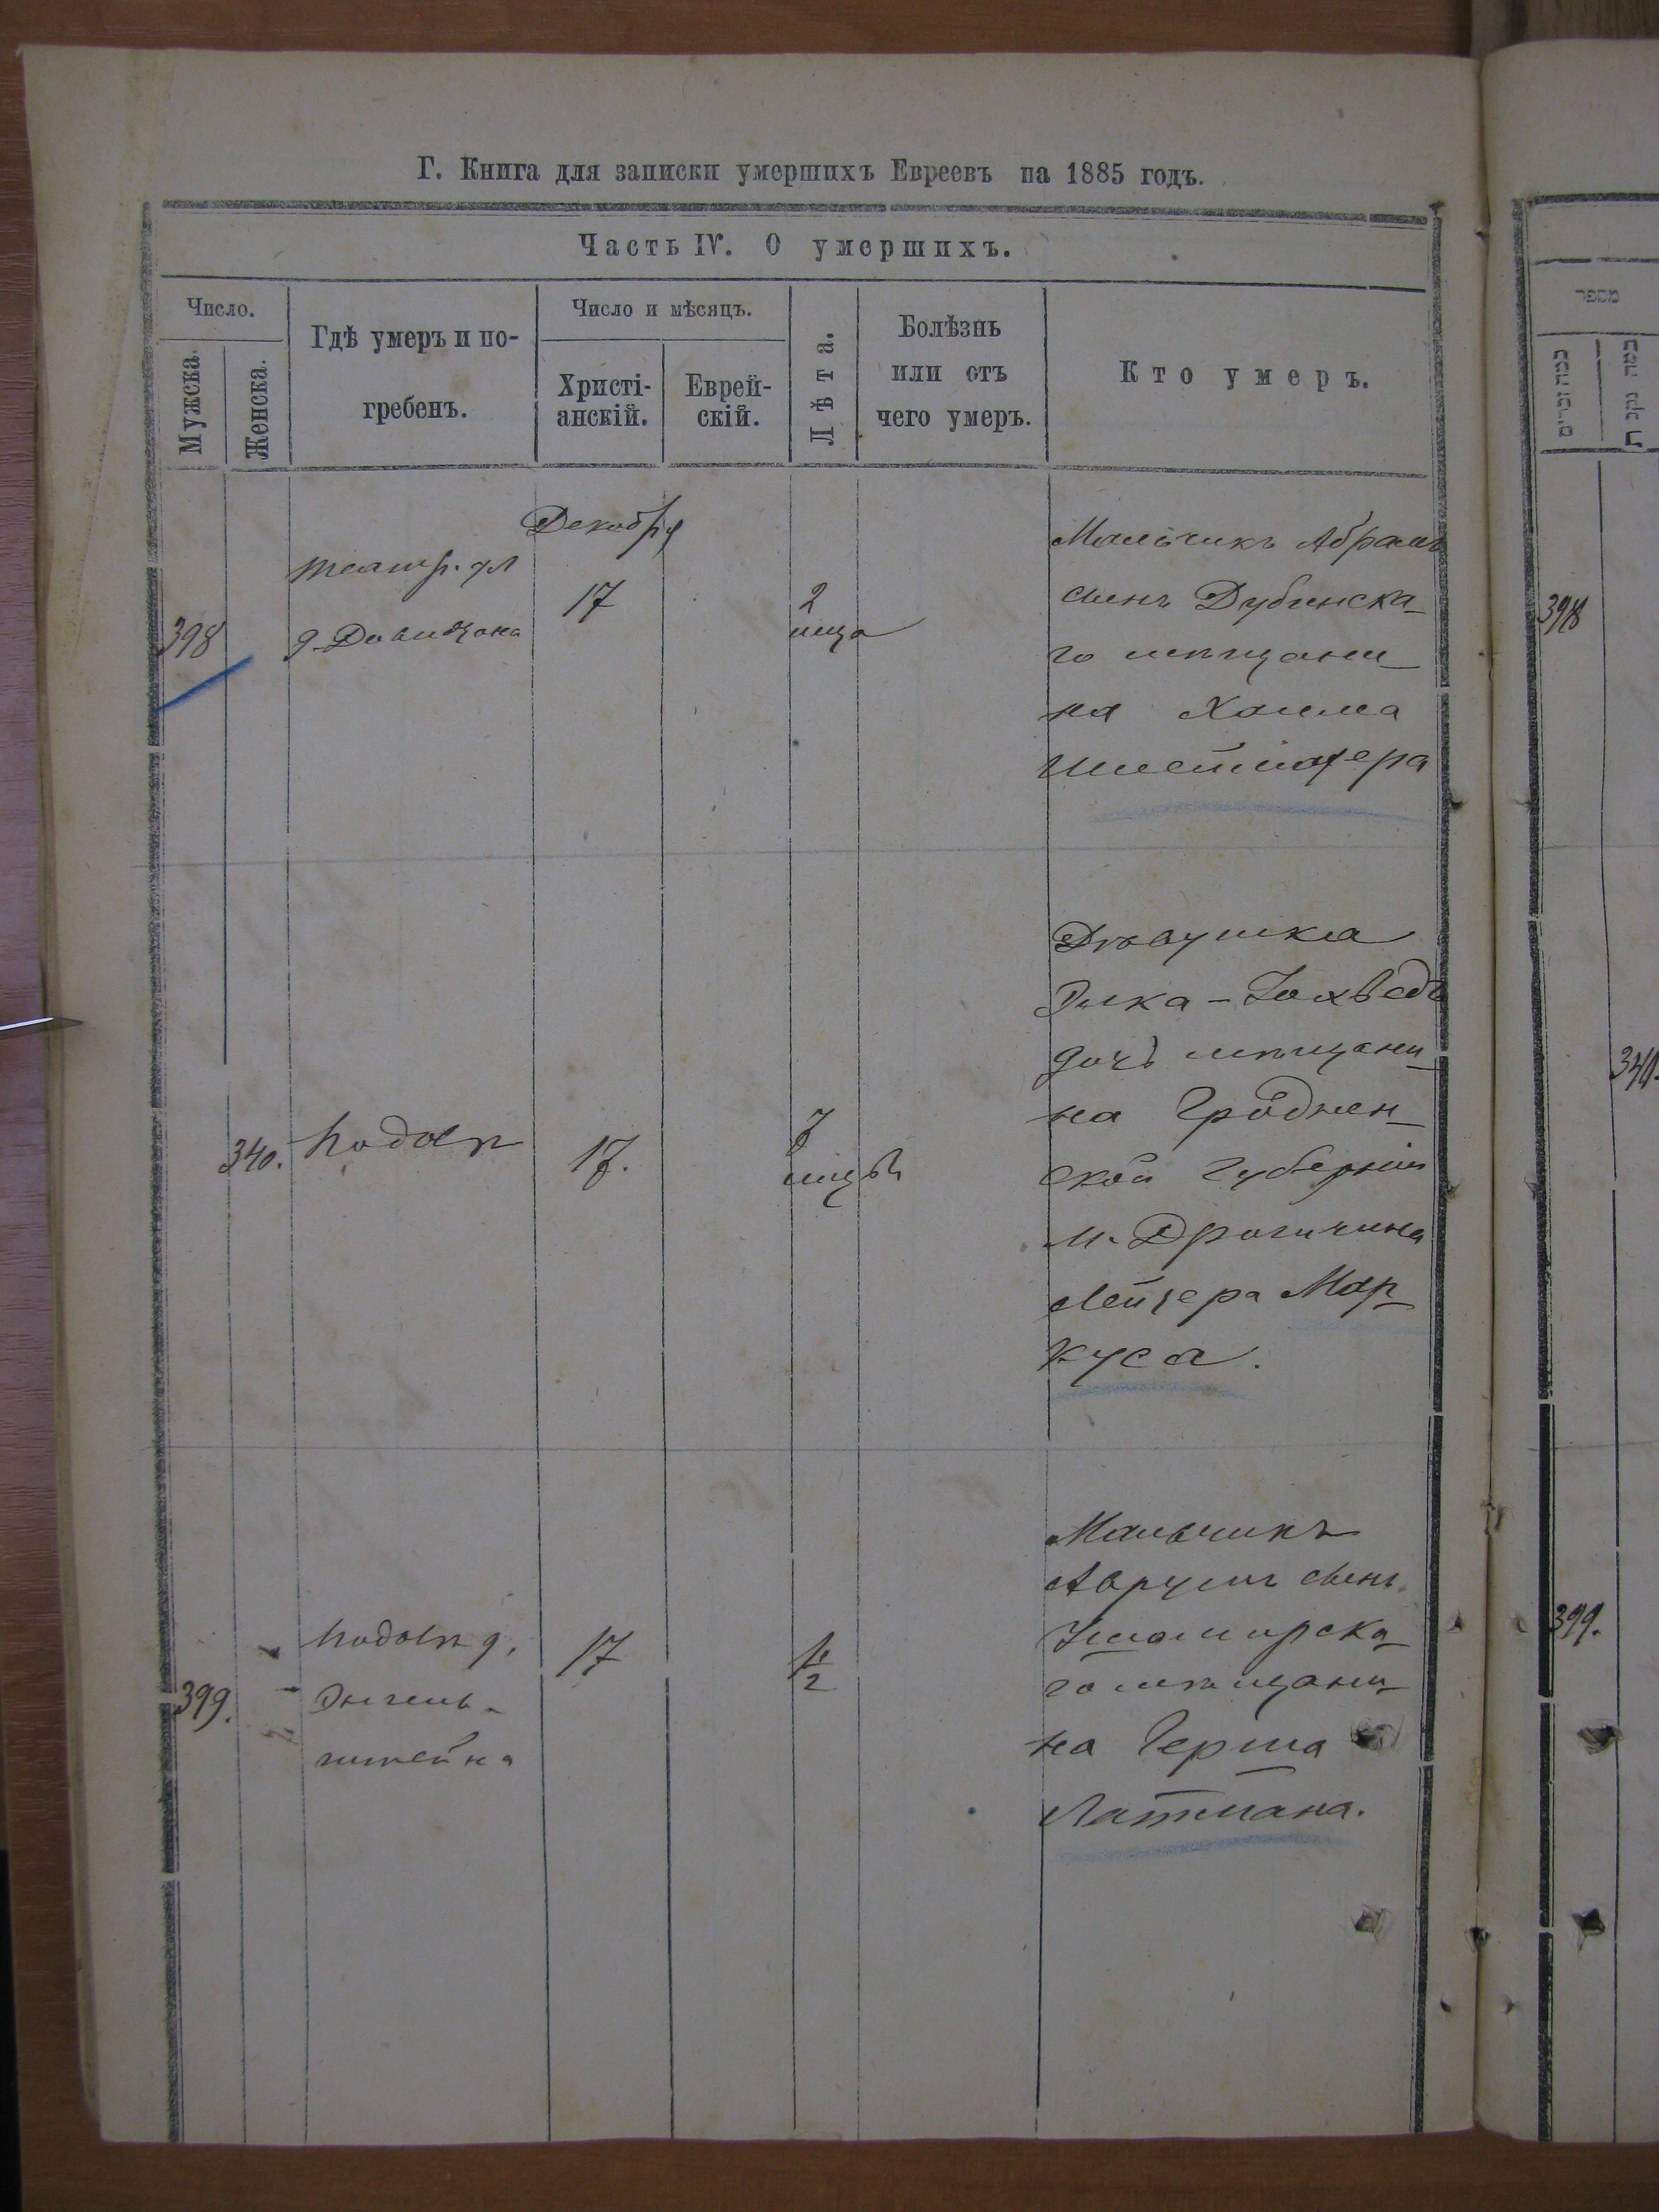 Г. Книга для записки умершихъ Евреевъ на 1885 годъ.
Часть IV. О умершихъ.
Число.
Мужска.
Женска.
Гдѣ умеръ и по-
гребенъ.
Число и мѣсяцъ.
Христі-
анскій.
Еврей-
скій.
Лѣта.
Болѣзнь
или отъ
чего умеръ.
Кто умеръ.
398
театр. ул
д. Давидзона
Декабря
17
2
мца
Мальчикъ Абрамъ
сынъ Дубенска-
го мѣщани-
на Хаима
398
340.
Подолъ
17.
7
мцъ
Дѣвушка
Элка-Іохведъ
дочь мѣщани-
на Гроднен-
ской Губерніи
м. Дрогичина
Лейзера Мар-
куса.
340.
399.
Подолъ д.
17
1/2
Мальчикъ
Аврумъ сынъ
Ушомирска-
го мѣщани-
на Герша
Латмана.
399.